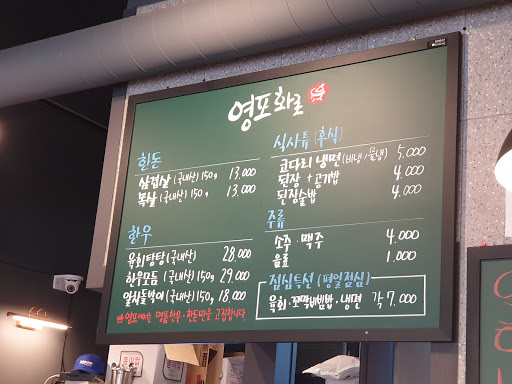 영포화로
한돈
삼겹살(국내산)150g 13.000
목살(국내산)150g 13.000
한우
육회탕탕(국내산) 28.000
한우모듬(국내산)150g 29.000
알차돌박이(국내산)150g 18.000
영포에는 명품한우·한돈만을 고집합니다.
식사류(후식)
코다리냉면(비냉/물냉) 5.000
된장+공기밥 4.000
된장술밥 4.000
주류
소주·맥주 4.000
음료 1.000
점심특선(평일점심)
육회·꼬막비빔밥·냉면 각 7.000